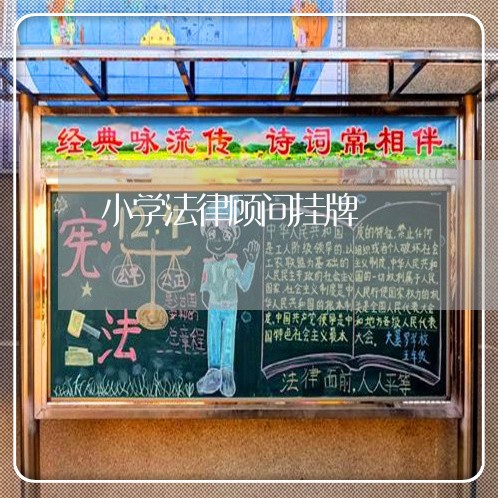 经典咏流传 诗词常相伴
小学法律顾问挂牌
12.4
宪
法
公平 公正
总章程
中华人民共和国
是工人阶级领导的,以
工农联盟为基础的
人民民主专政的社会主义
国家,社会主义制度是中
华人民共和国的根本制
度,中国共产党领导是中
国特色社会主义最本
质的特征,禁止任何
组织或者个人破坏社会
主义制度,中华人民共和
国的一切权利属于人民,
人民行使国家权力的机
关是全国人民代表大会
和地方各级人民代表
大会。
五年级
法律面前,人人平等